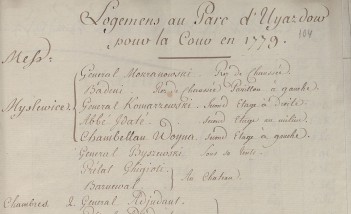 Logemens au Parc d'Uyazdow
pour la Cour en 1779. 104
Mess:
General Mokranowski. Réz de Chaussée
Badeni Rez de Chaussée Pavillon à gauche.
Myslewice General Komarzewski. Second Etage à Droite
Abbé Baté. Second Etage au milieu.
Chambellan Woyna. Second Etage à gauche.
General Byszewski
Prélat Ghigiotti
Au Chateau.
Chambres 2 General Adjudant.